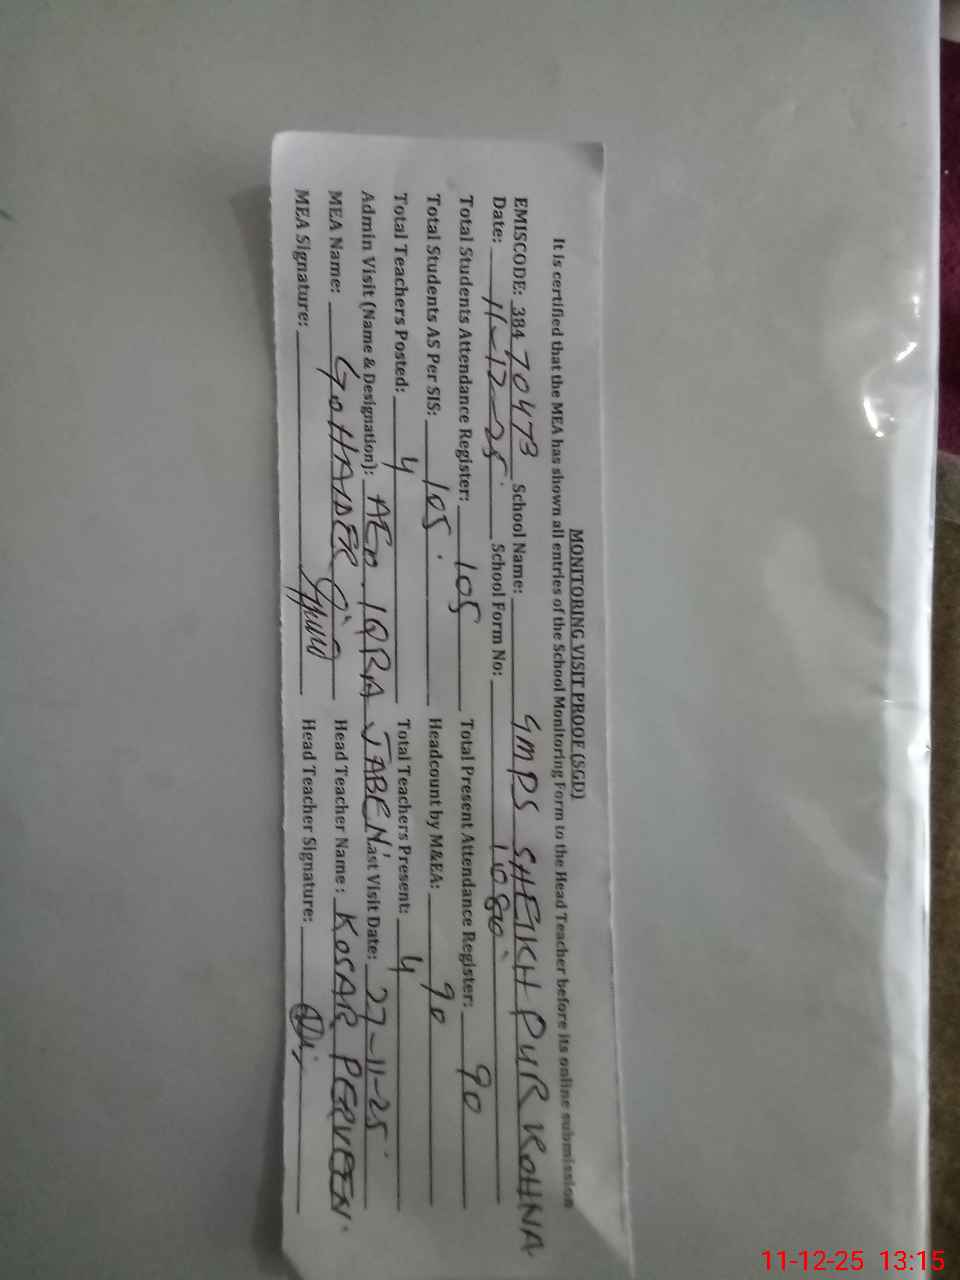 MONITORING VISIT PROOF (SGD)
It is certified that the MEA has shown all entries of the School Monitoring Form to the Head Teacher before its online submission
EMISCODE: 384 70473 School Name: GMPS SHEIKH PUR KOHNA
Date: 11-12-25 School Form No: 1080
Total Students Attendance Register: 105 Total Present Attendance Register: 90
Total Students AS Per SIS: 105 Headcount by M&EA: 90
Total Teachers Posted: 4 Total Teachers Present: 4
Admin Visit (Name & Designation): AEO IQRA JABEN Last Visit Date: 27-11-25
MEA Name: G.HAIDER Head Teacher Name: KOSAR PERVEEN
MEA Signature: Head Teacher Signature:
11-12-25 13:15